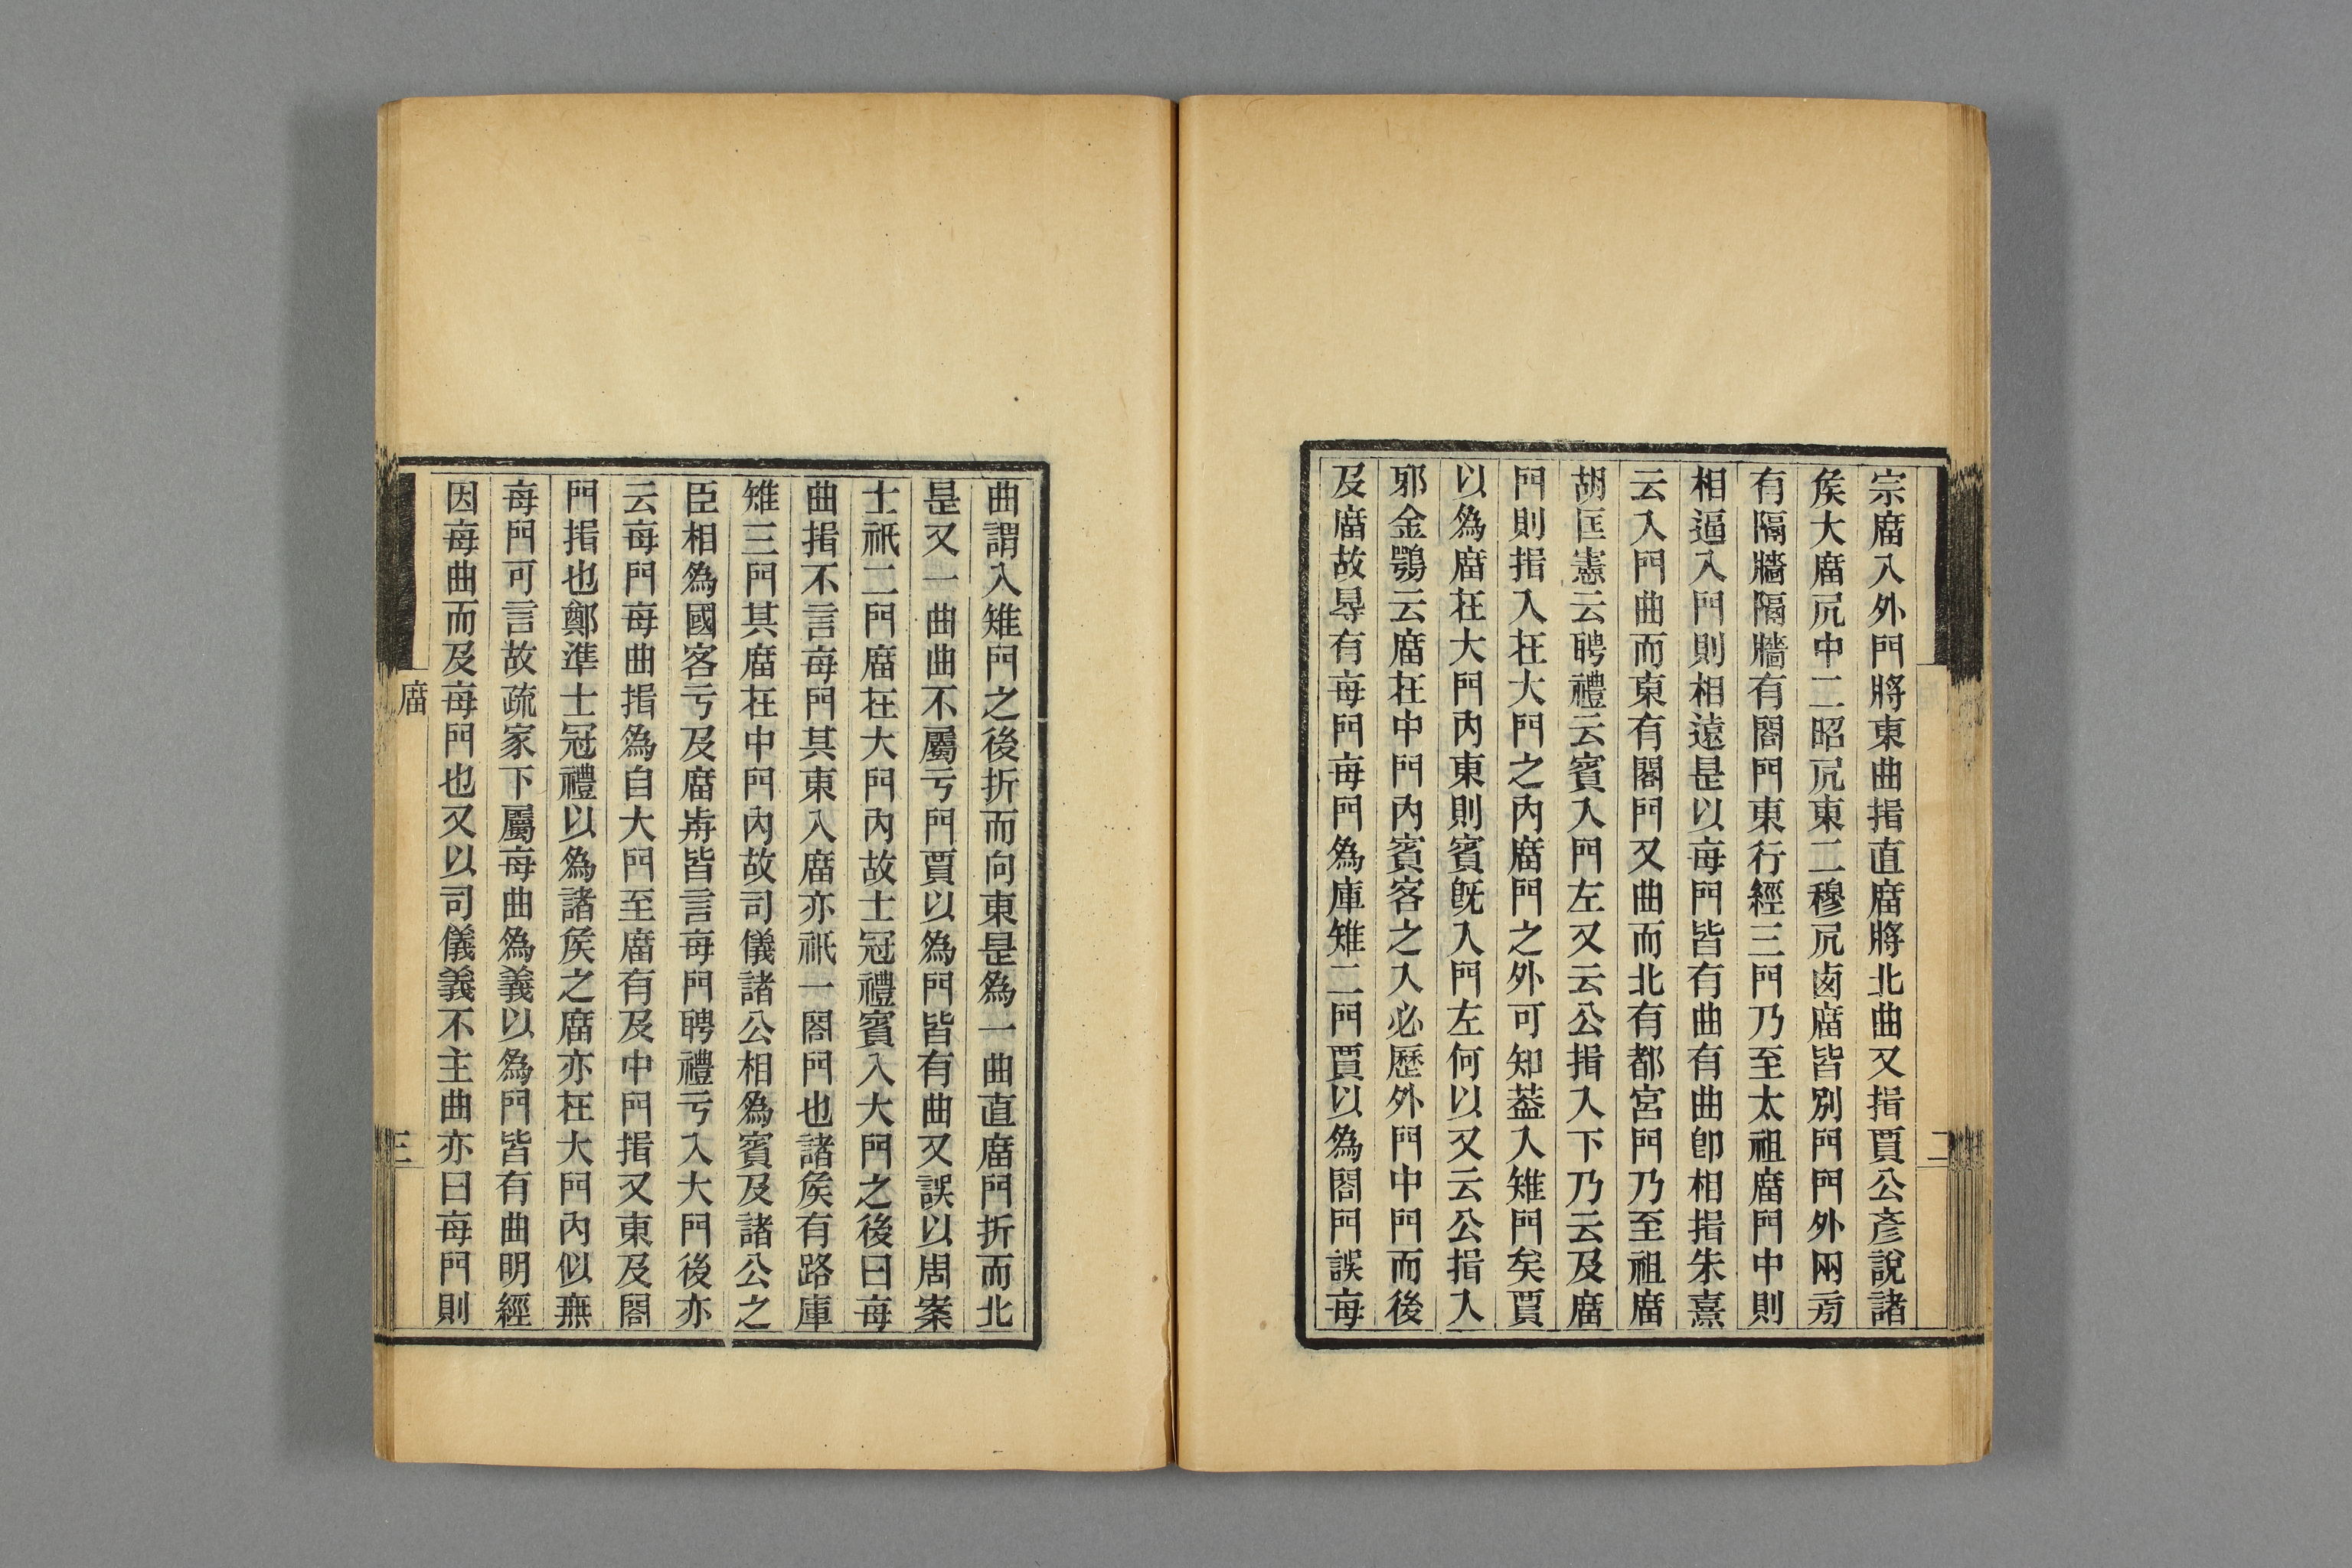 宗庿入外門將東曲揖直庿將北曲又揖賈公彥說諸
矦大庿凥中二昭凥東二穆凥卥庿皆別門門外兩㫄
有隔牆隔牆有閤門東行經三門乃至太祖庿門中則
相逼入門則相遠是以每門皆有曲有曲卽相揖朱熹
云入門曲而東有閤門又曲而北有都宮門乃至祖庿
胡匡憲云聘禮云賓入門左又云公揖入下乃云及庿
門則揖入在大門之內庿門之外可知葢入雉門矣賈
以為庿在大門內東則賓旣入門左何以又云公揖入
邪金鶚云庿在中門內賓客之入必歷外門中門而後
及庿故㝵有每門每門為庫雉二門賈以為閤門誤每
曲謂入雉門之後折而向東是為一曲直庿門折而北
是又一曲曲不屬亏門賈以為門皆有曲又誤以周案
士祇二門庿在大門內故士冠禮賓入大門之後曰每
曲揖不言每門其東入庿亦祇一閤門也諸矦有路庫
雉三門其庿在中門內故司儀諸公相為賓及諸公之
臣相為國客亏及庿歬皆言每門聘禮亏入大門後亦
云每門每曲揖為自大門至庿有及中門揖又東及閤
門揖也鄭準士冠禮以為諸矦之庿亦在大門內似無
每門可言故疏家下屬每曲為義以為門皆有曲明經
因每曲而及每門也又以司儀義不主曲亦曰每門則
庿
三
二